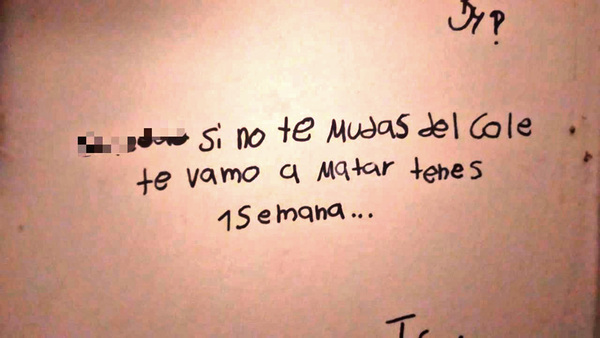 si no te mudas del cole
te vamo a matar tenes
1 semana...